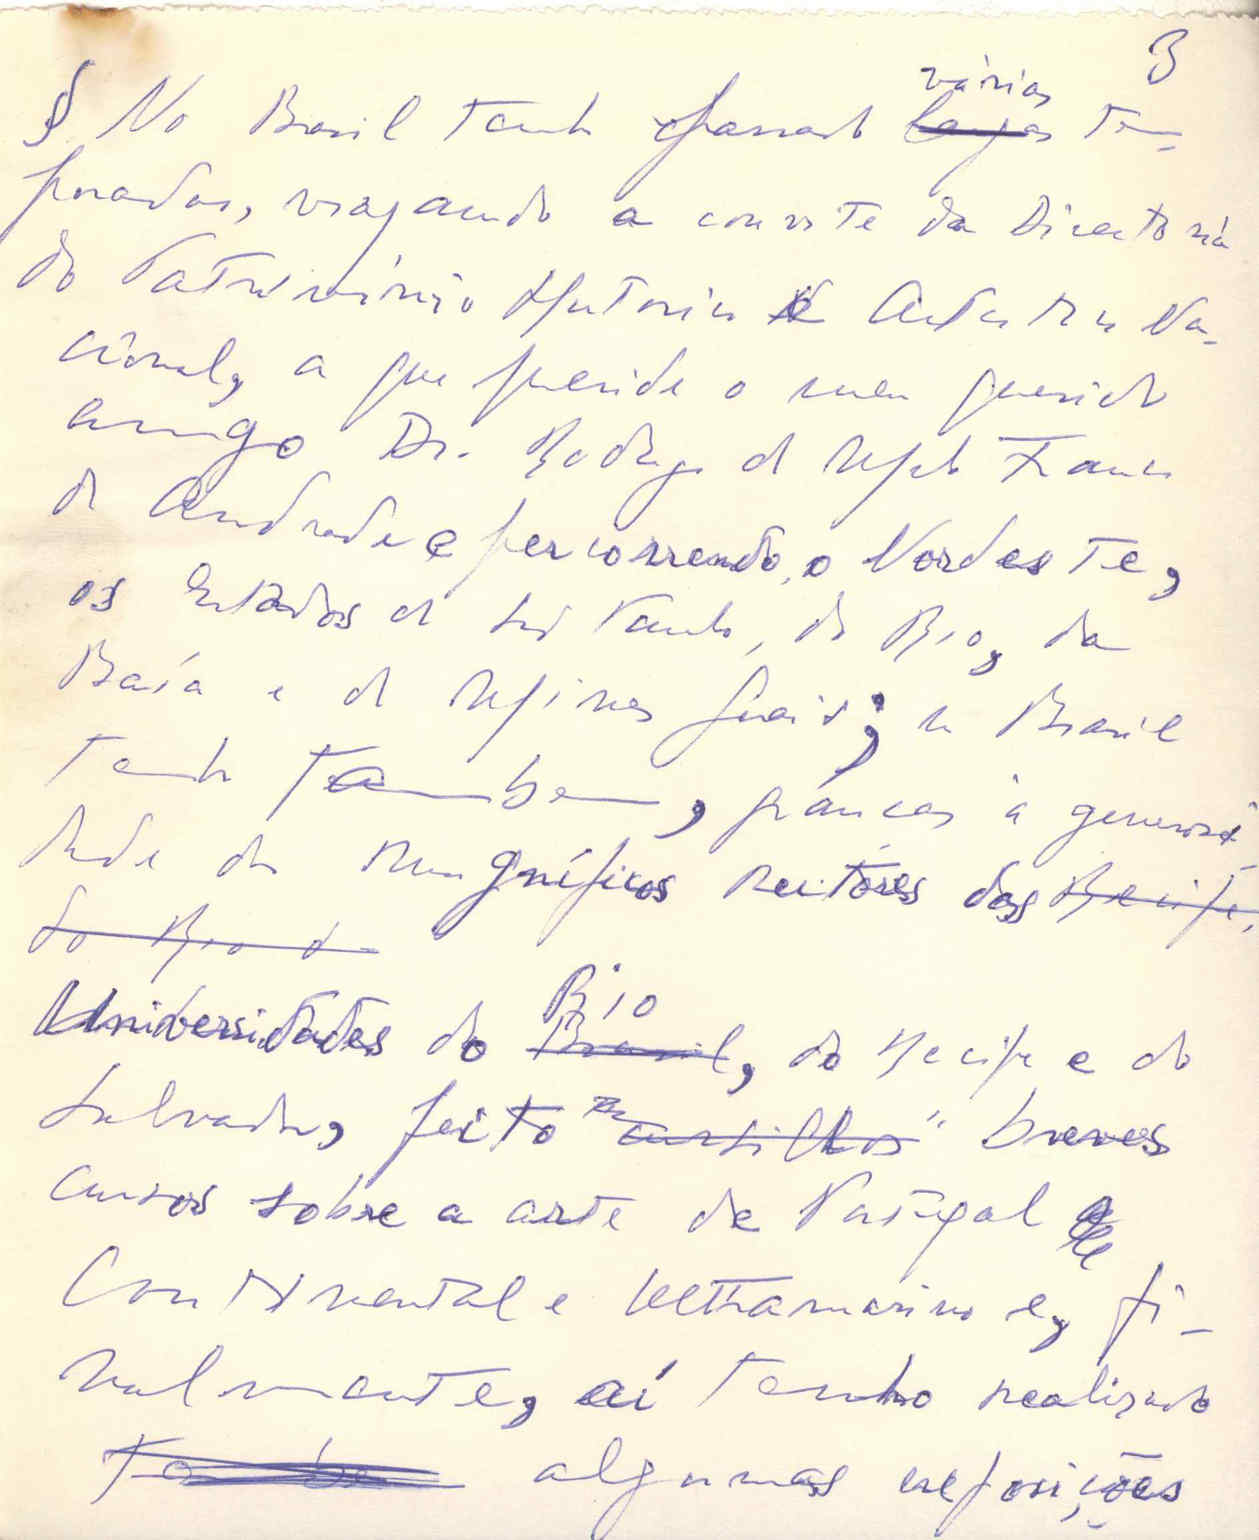 3
várias
§ No Brasil tenho passado longas tem-
poradas, viajando a convite da Directoria
do Património Histórico e Artístico Na-
cional, a que preside o meu querido
amigo Dr. Rodrigo de Melo Franco
de Andrade e percorrendo, o Nordeste,
os Estados de São Paulo, do Rio, da
Baía e de Minas Gerais; no Brasil
tenho tambem, graças à generosi-
dade dos Magníficos Reitores das Recife,
do Rio de
Universidades do Brasil, do Recife e do
Rio
Salvador, feito "cursilhos" breves
cursos sobre a arte de Portugal
Continental e Ultramarino e, fi-
nalmente, aí tenho realizado
Tambem algumas exposições